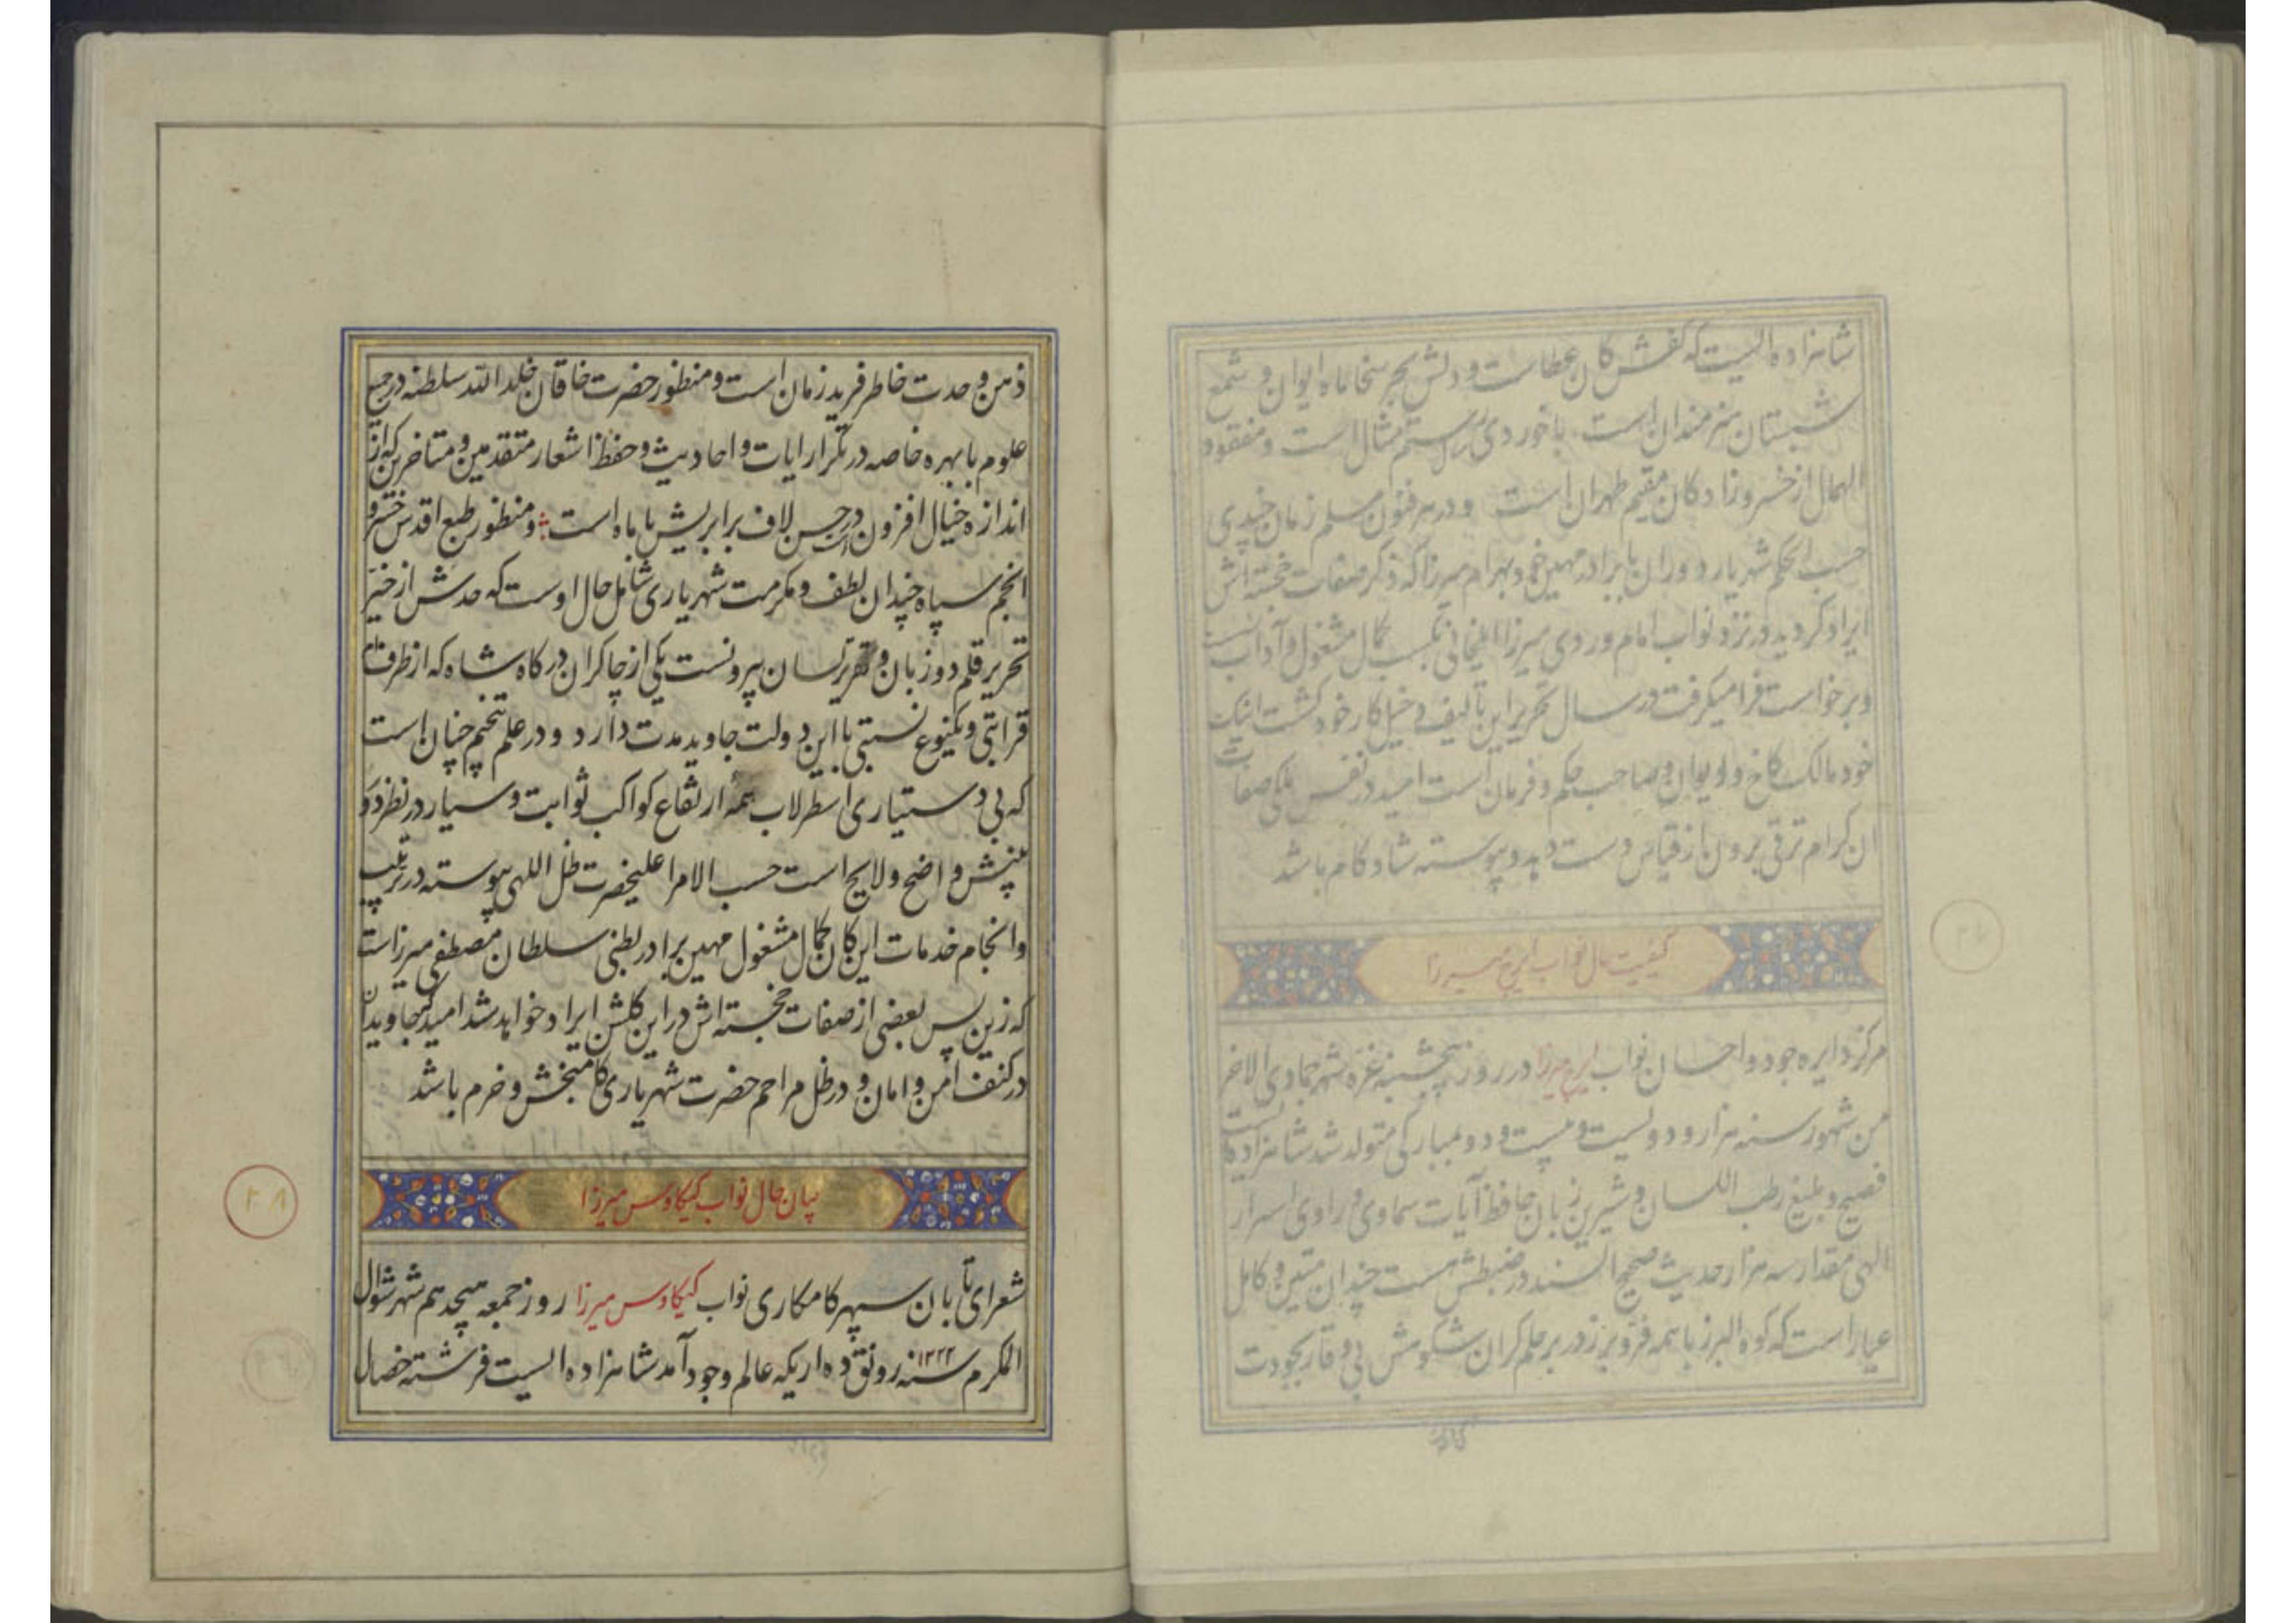 شاهزاده ایست که کفش کان عطاست و دلش بحر سخا ماه ایوان و شمع
شبستان هنرمندان است با خوردی رستم مثال است و مفقود
الهمال از خسروزادکان مقیم طهران است و در هر فنون مسلم زمان چندی
حسب الحکم شهریار دوران با برادر مهین خود بهرام میرزا که ذکر صفات خجسته اش
ایراد کردید در نزد نواب امام وردی میرزا ایلخانی بکسب کمال مشغول و آداب نشست
و برخواست فرا میکرفت در سال تحریر این تالیف دخیل کار خود کشت اینک
خود مالک کاخ و ایوان و صاحب حکم و فرمان است امید در نفس ملکی صفات
ان کرام ترقی برون از قیاس دست دهد و پیوسته شاد کام باشد
کیفیت حال نواب ایرج میرزا
مرکز دایره جود و احسان نواب ایرج میرزا در روز پنجشنبه غره شهر جمادی الاخر
من شهور سنه هزار و دویست و بیست و دو بمبارکی متولد شد شاهزاده ایست
فصیح و بلیغ رطب اللسان و شیرین زبان حافظ آیات سماوی و راوی اسرار
الهی مقدار سه هزار حدیث صحیح السند در ضبطش هست چندان متین و کامل
عیار است که کوه البرز با همه فر و برز در بر حلم کران شکوهش بی وقار بجودت
ذهن و حدت خاطر فرید زمان است و منظور حضرت خاقان خلد الله سلطنه در جمیع
علوم با بهره خاصه در تکرار ایات و احادیث و حفظ اشعار متقدمین و متاخرین که از
اندازه خیال افزون در حسن لاف برابریش با ماه است و منظور طبع اقدس خسرو
انجم سپاه چندان لطف و مکرمت شهریاری شامل حال اوست که حدش از حیز
تحریر قلم دوزبان و تقریر لسان بیرونست یکی از چاکران درکاه شاه که از طرف
قرابتی و یکنوع نسبتی با این دولت جاوید مدت دارد و در علم تنجیم چنان است
که بی دستیاری اسطرلاب همه ارتفاع کواکب ثوابت و سیار در نظر دو
بینش واضح و لایح است حسب الامر اعلیحضرت ظل اللهی پیوسته در تربیت
و انجام خدمات این کان کمال مشغول مهین برادر بطنی سلطان مصطفی میرزاست
که زین پس بعضی از صفات خجسته اش در این کلشن ایراد خواهد شد امید که جاویدان
در کنف امن و امان و در ظل مراحم حضرت شهریاری کامبخش و خرم باشد
بیان حال نواب کیکاوس میرزا
٢٨
شعرای تابان سپهر کامکاری نواب کیکاوس میرزا روز جمعه هیجدهم شهر شوال
المکرم سنه ١٢٢٢ رونق ده اریکه عالم وجود آمد شاهزاده ایست فرشته خصال